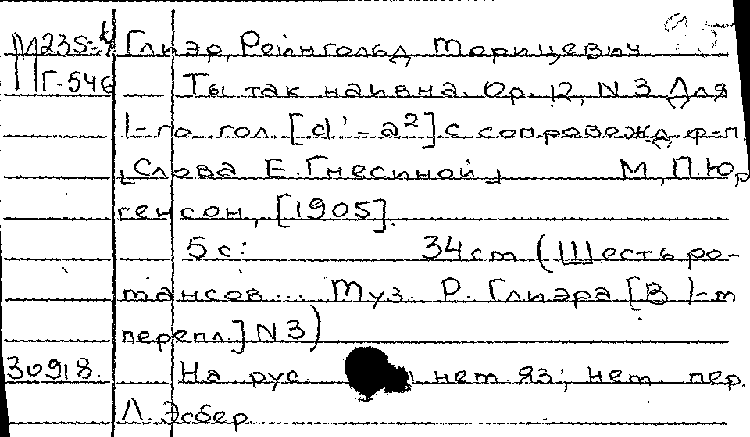 М235-4 Глиэр, Рейнгольд Морицевич 95
Г-546 Ты так наивна. Ор. 12, N 3. Для
1-го гол. [d'-a²] с сопровожд. ф-п.
[Слова Е. Гнесиной] М, П. Юр
генсон, [1905].
5 с. 34 cm (Шесть ро-
мансов... Муз. Р. Глиэра [В 1-м
перепл.] N 3)
30918. На рус. нем яз; нем пер.
Л. Эсбер